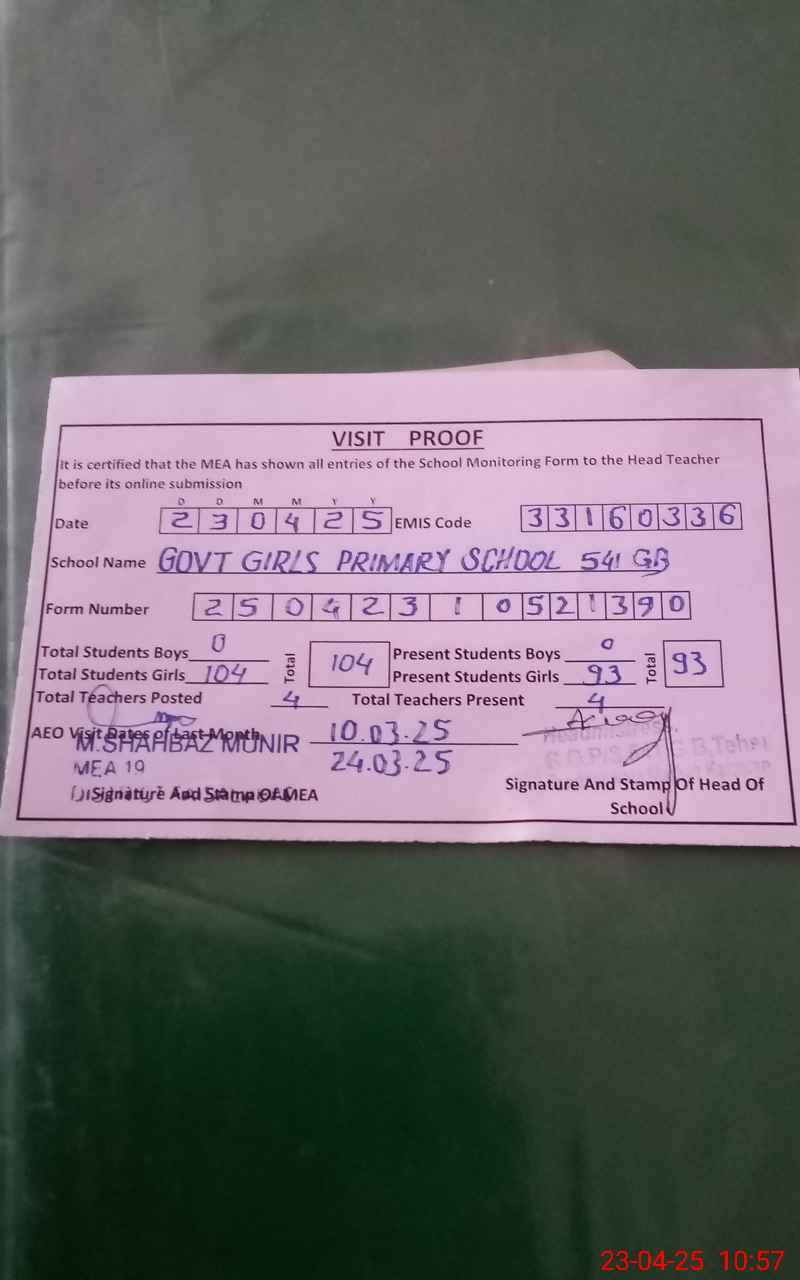 VISIT PROOF
It is certified that the MEA has shown all entries of the School Monitoring Form to the Head Teacher
before its online submission
D D M M Y Y
Date 2 3 0 4 2 5 EMIS Code 3 3 1 6 0 3 3 6
School Name GOVT GIRLS PRIMARY SCHOOL 541 GB
Form Number 2 5 0 4 2 3 1 0 5 2 1 3 9 0
Total Students Boys 0 Total 104 Present Students Boys 0 Total 93
Total Students Girls 104 Present Students Girls 93
Total Teachers Posted 4 Total Teachers Present 4
AEO Visit Dates of Last Month 10.03.25
M.SHAHBAZ MUNIR 24.03.25
MEA 19
Signature And Stamp Of MEA
Signature And Stamp Of Head Of
School
23-04-25 10:57